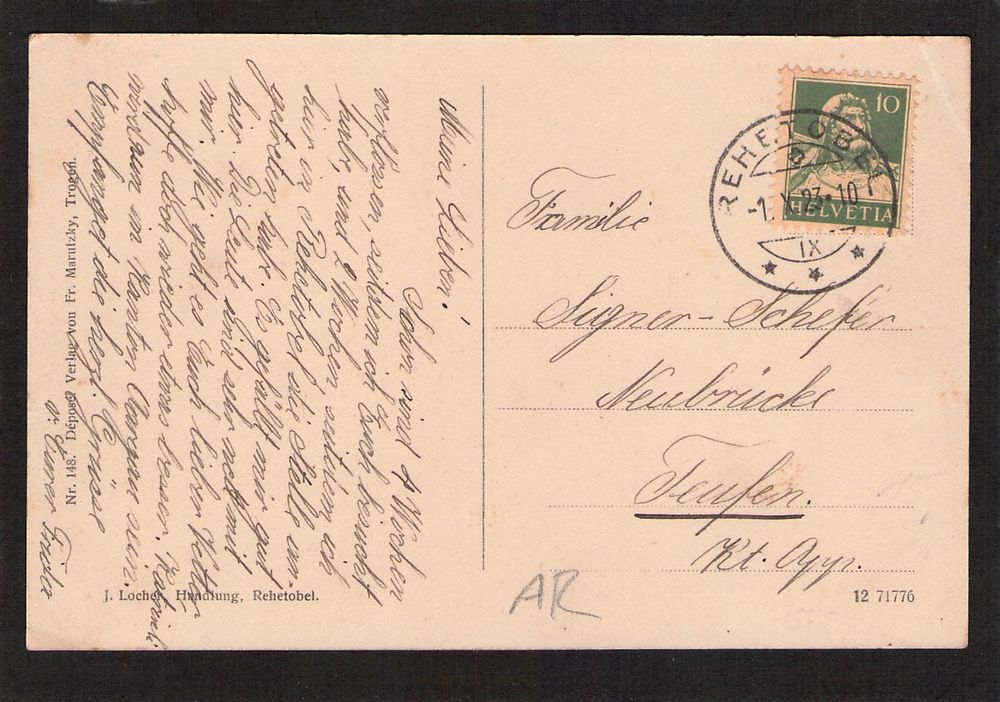 Meine Lieben!
Schon sind 4 Wochen
verflossen seitdem ich Euch besucht
habe, und 2 Wochen seitdem ich
hier in Rehetobel die Stelle an-
getreten habe. Es gefällt mir gut
hier. Die Leute sind sehr nett mit
mir. Wie geht es Euch lieber Vetter
hoffe doch wieder etwas besser.
werden im Kanton Aargau sein.
Empfanget die herzl. Grüsse
v. Eurer Frieda
Nr. 148. Déposé Verlag von Fr. Marutzky, Trogen.
J. Locher, Handlung, Rehetobel.
10
HELVETIA
REHETOBEL
-1. X. 23-10
IX
Familie
Signer-Schefer
Neubrücke
Teufen.
Kt. App.
AR
12 71776